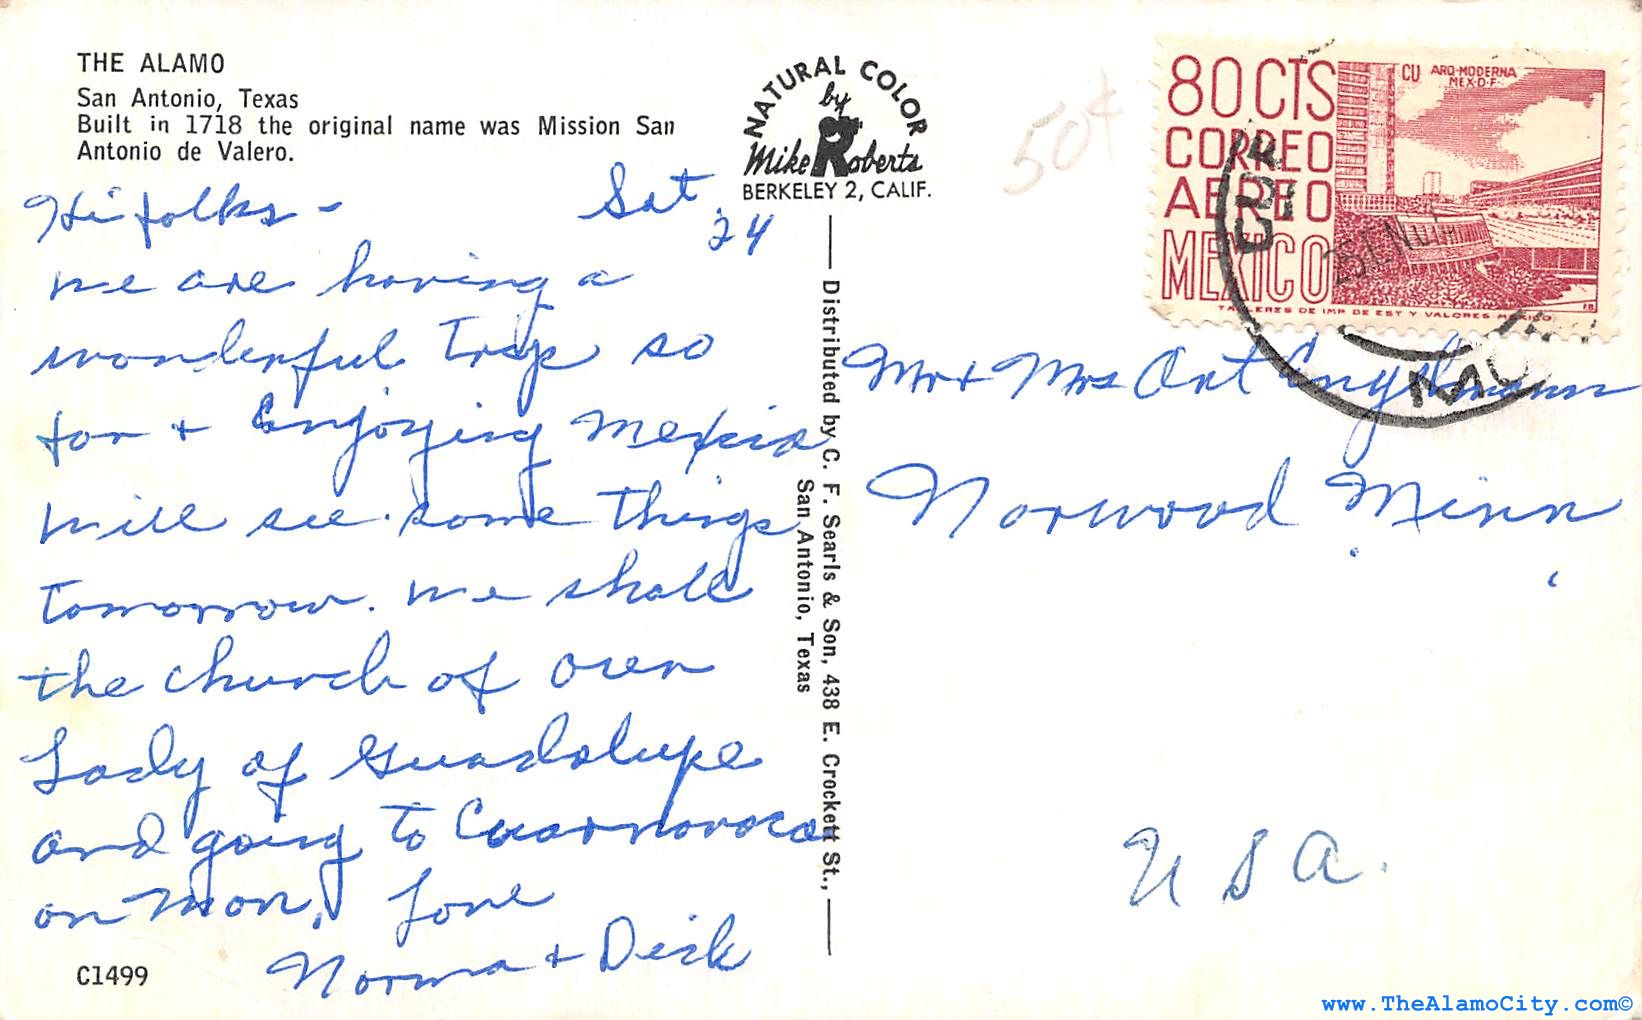 THE ALAMO
San Antonio, Texas
Built in 1718 the original name was Mission San
Antonio de Valero.
NATURAL COLOR
by
Mike Roberts
BERKELEY 2, CALIF.
50¢
80 CTS
CORREO
AEREO
MEXICO
CU ARQ-MODERNA
MEX-D-F-
TALLERES DE IMP. DE EST. Y VALORES MEXICO
25 EN
Hi folks - Sat.
24
we are having a
wonderful trip so
far + Enjoying Mexico
will see some things
tomorrow. we shall
the church of Our
Lady of Guadalupe
and going to Cuarnavaca
on Mon. Love
Norma + Dick
C1499
Distributed by C. F. Searls & Son, 438 E. Crockett St.,
San Antonio, Texas
Mr + Mrs Art Engelmann
Norwood Minn
U S A.
www.TheAlamoCity.com©